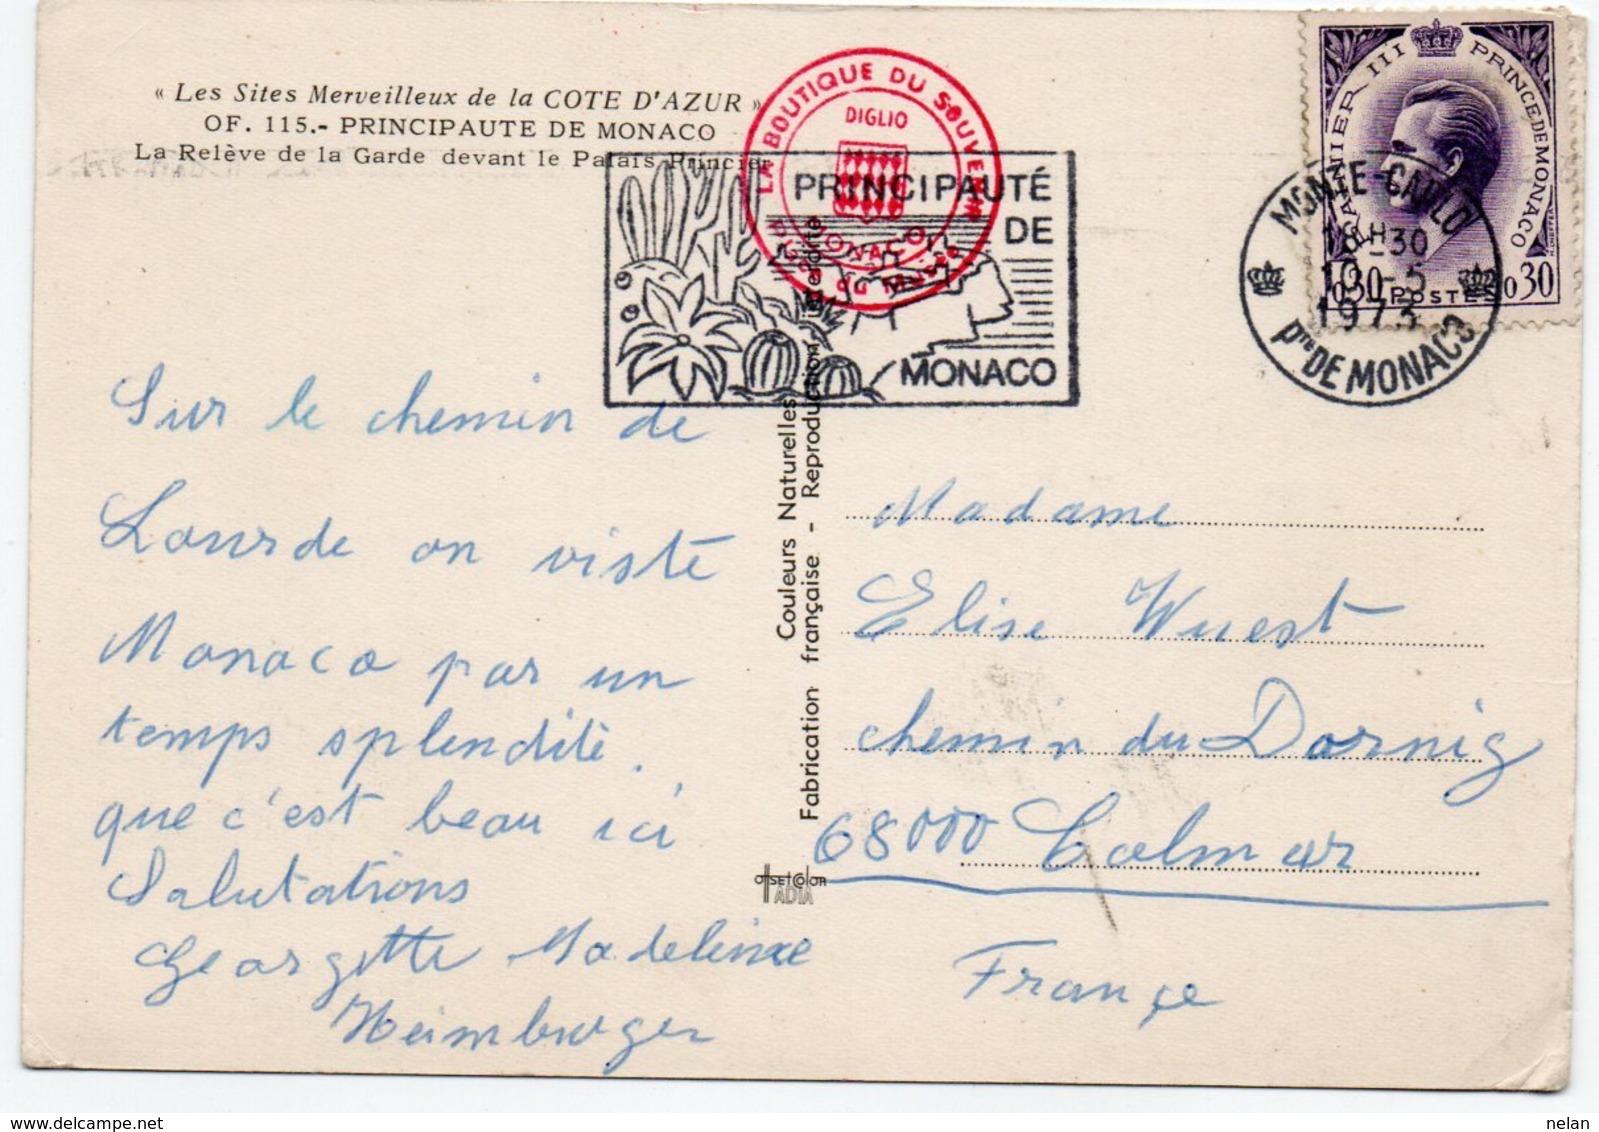 « Les Sites Merveilleux de la COTE D'AZUR »
OF. 115.- PRINCIPAUTE DE MONACO
La Relève de la Garde devant le Palais Princier
LA BOUTIQUE DU SOUVENIR
DIGLIO
MONACO
Place du Musée
PRINCIPAUTÉ
DE
MONACO
RAINIER III PRINCE DE MONACO
0,30 POSTES 0,30
MONTE-CARLO
18H30
-5
1973
Pté DE MONACO
Sur le chemin de
Lourde on visté
Monaco par un
temps splendité.
que c'est beau ici
Salutations
Georgette Madeleine
Heimburger
Couleurs Naturelles
Fabrication française - Reproduction interdite
OFFSET COLOR
ADIA
Madame
Elise Wuest
chemin du Dornig
68000 Colmar
France
delcampe.net
nelan